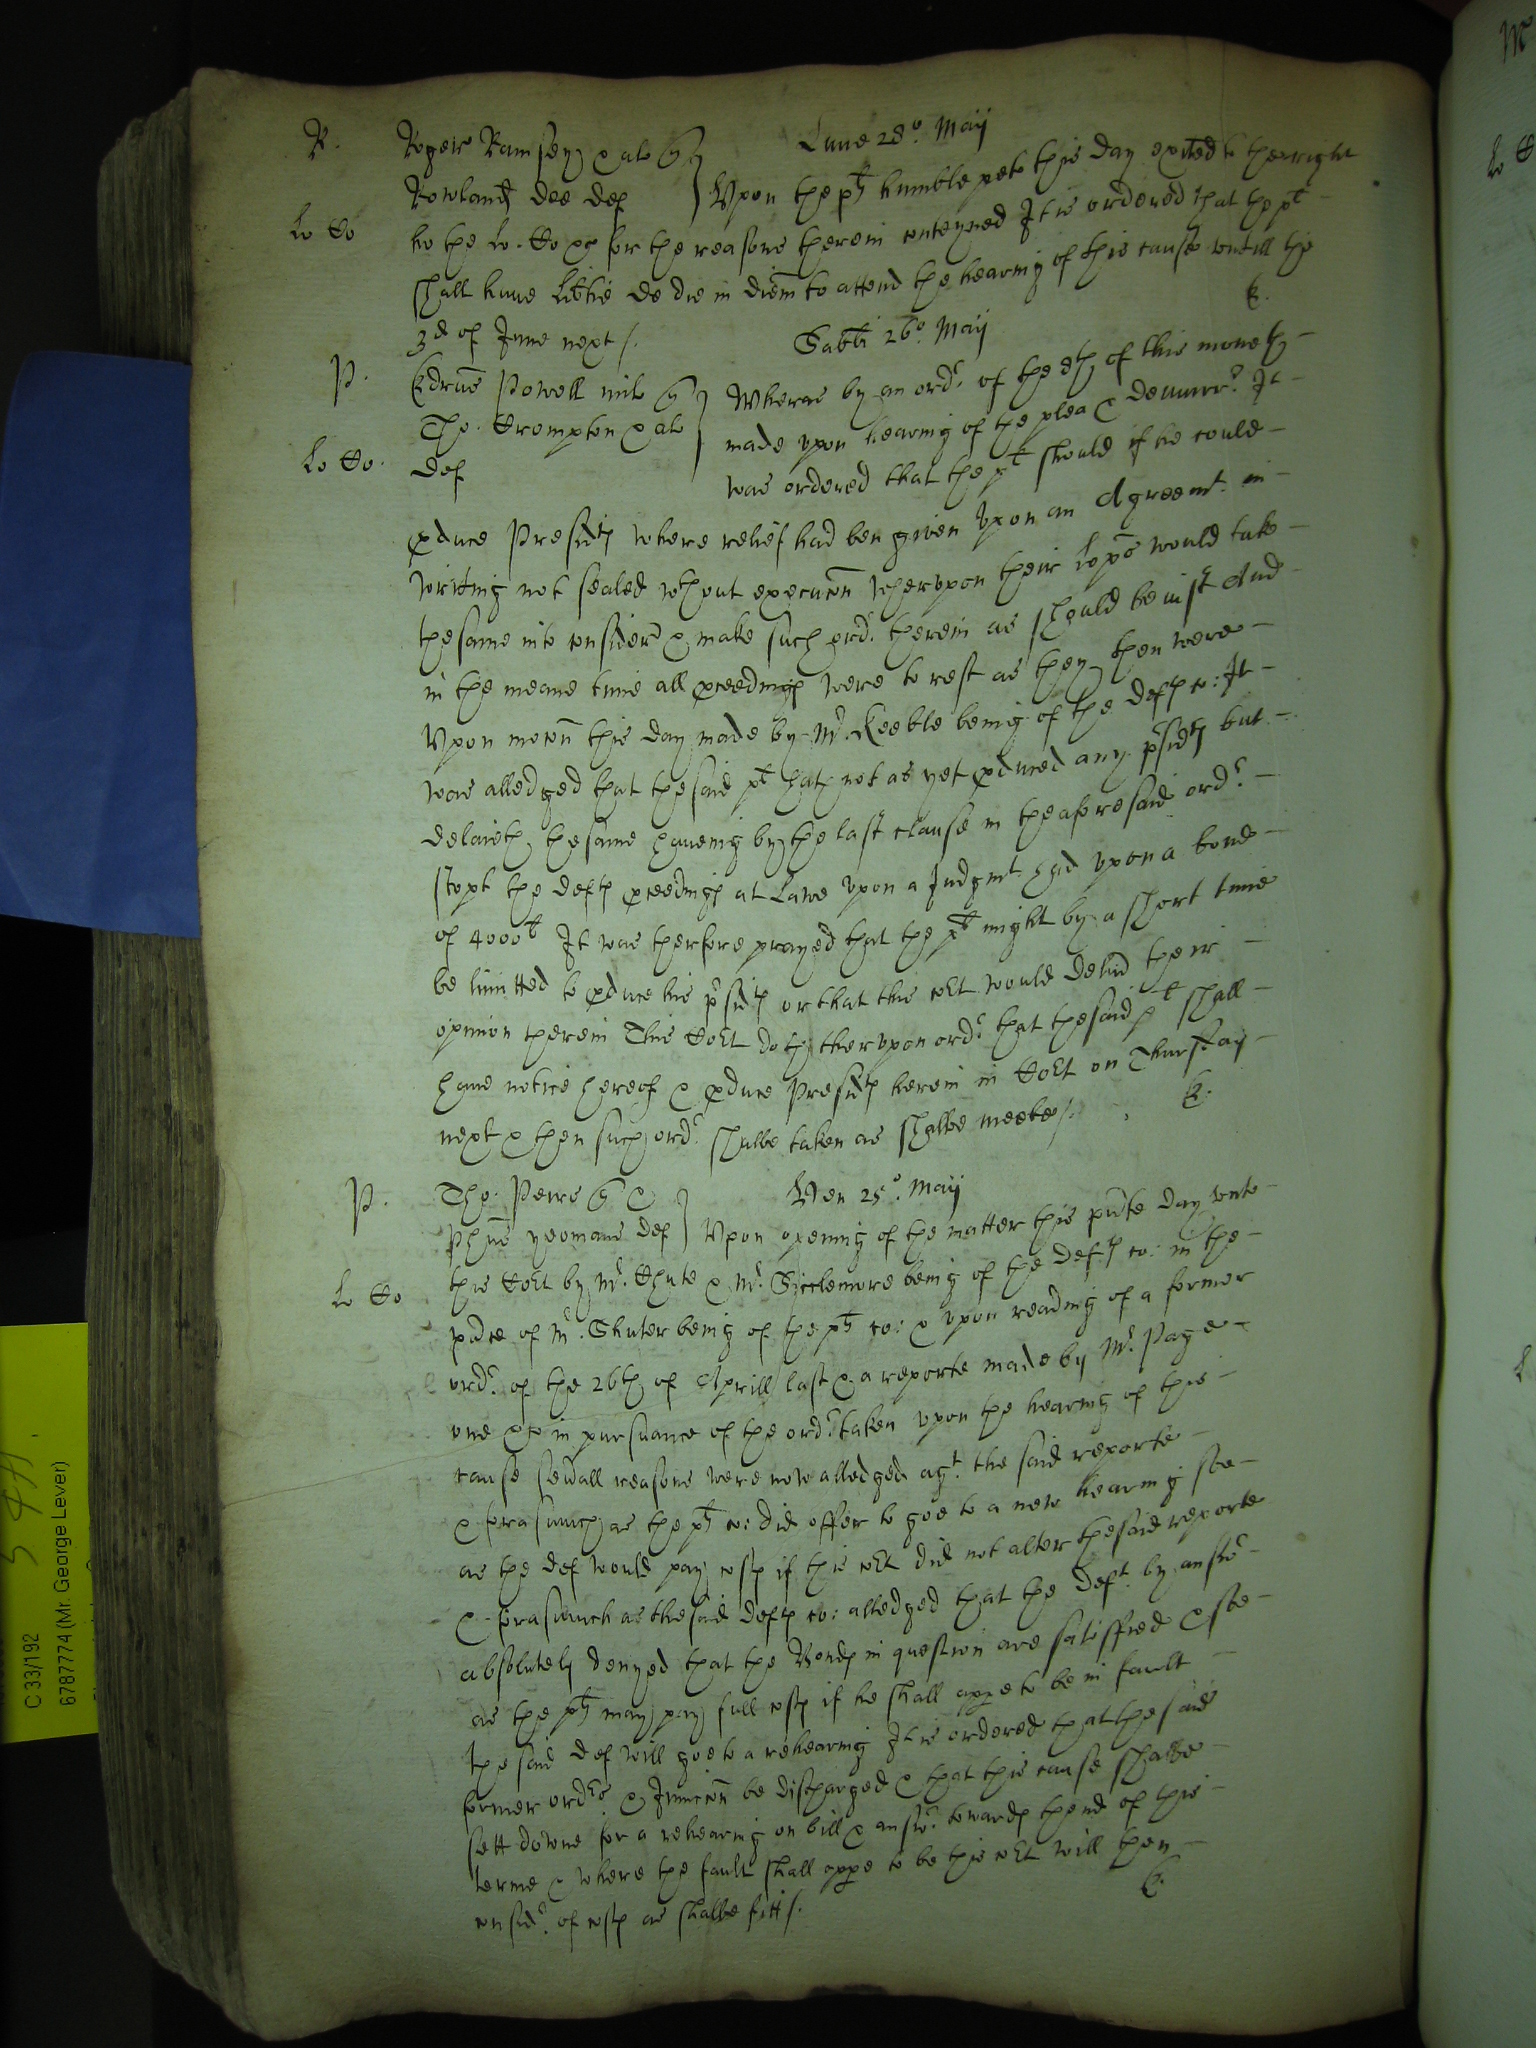 R. Roger Ramsey & al q} Lune 28o. Maij
Rowland Dee def } Upon the plt humble peto this day exited to the right
Lo Co ho the Lo. Co &c for the reasons therein conteyned It is ordered that the plt
shall have libtie de die in diem to attend the hearing of this cause untill the
3d of June next /. E.
Sabbi 26o Maij
P. Edrus Powell mil q} Wheras by an ordr. of the 8th of this moneth
Tho. Crompton & al } made upon hearing of the plea & demurrr. It
Lo Co. def was ordered that the plt should if he could
pduce Presidts where relief had ben given upon an Agreemt. in
writing not sealed wthout execucon wherupon their Lopps would take
the same into consideracon & make such ordr. therein as should be iust And
in the meane time all pceedings were to rest as they then were
Upon mocon this day made by Mr. Keeble being of the defts co: It
was alledged that the said plt hath not as yet pduced any psidts but
delaieth the same haveing by the last clause in the aforesaid ordr.
stopt the defts pceedings at Lawe upon a Judgmt. had upon a bond
of 4000li It was therfore prayed that the plt might by a short time
be limitted to pduce his psidts or that this cort would deliver their
opinion therein This Cort doth therupon ordr. that the said plt shall
have notice hereof & pduce Presidts herein in Cort on Thursday
next & then such ordr. shalbe taken as shalbe meete /. E.
P. Tho. Peirs q C } Ven 25o. Maij
Phus yeomans def } Upon opening of the matter this pnte day unto
Lo Co this Cort by Mr. Chute & Mr. Sicclemore being of the defts co: in the
pnce of Mr. Shuter being of the plts co: & upon reading of a former
ordr. of the 26th of Aprill last & a reporte made by Mr. Page
one &c in pursuance of the ordr. taken upon the hearing of this
cause sevall reasons were now alledged agt. the said reporte
& forasmuch as the plts co: did offer to goe to a new hearing soe
as the def would pay costs if this cort did not alter the said reporte
& forasmuch as the said defts co: alledged that the deft. by answr
absolutely denyed that the Bonds in question are satisffied & soe
as the plt may pay full costs if he shall appe to be in fault
the said def will goe to a rehearing It is ordered that the said
former ordrs & Iniuncon be discharged & that this cause shalbe
sett downe for a rehearing on bill & answr. towards thend of this
terme & where the fault shall appe to be this cort will then
considr. of costs as shalbe fitt /. E.
C 33/192
6787774 (Mr. George Lever)